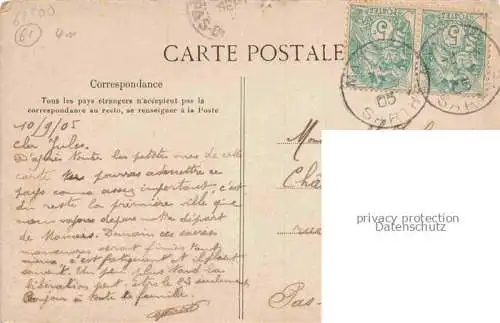 61
CARTE POSTALE
Correspondance
Tous les pays étrangers n'acceptent pas la
correspondance au recto, se renseigner à la Poste
10/9/05
Cher Jules.
D'après toute les petites vues de cette
carte tu pourras admettre ce
pays comme assez important, c'est
du reste la première ville que
nous voyons depuis notre départ
de Mamers. Demain ces sacres
manœuvres seront finies tant
mieux c'est fatiguant et il pleut
souvent. Un peu plus tard la
libération peut-être le 23 seulement
Bonjour à toute la famille.
5
5
05
SARTHE
Mon
Châ
Pas-
privacy protection
Datenschutz